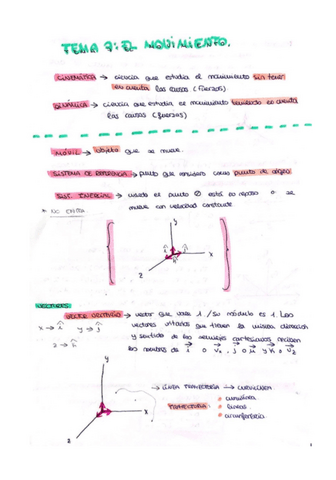 TEMA 7: EL MOVIMIENTO.
CINEMÁTICA → ciencia que estudia el movimiento sin tener
en cuenta las causas (fuerzas)
DINÁMICA → ciencia que estudia el movimiento teniendo en cuenta
las causas (fuerzas)
MÓVIL → objeto que se mueve.
SISTEMA DE REFERENCIA → punto que considero como punto de origen
SIST. INERCIAL → cuando el punto 0 está en reposo o se
mueve con velocidad constante
* NO ENTRA
y
x
z
VECTORES
VECTOR UNITARIO → vector que vale 1 / su módulo es 1. Los
x → i y → j
vectores unitarios que tienen la misma dirección
z → k
y sentido de los semiejes cartesianos reciben
los nombres de i o x, j o y y k o z
y
x
z
→ LÍNEA TRAYECTORIA → CURVILÍNEA
TRAYECTORIA
• curvilínea
• líneas
• circunferencia